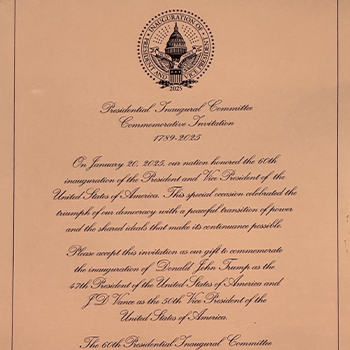 INAUGURATION OF
2025
Presidential Inaugural Committee
Commemorative Invitation
1789-2025
On January 20, 2025, our nation honored the 60th
inauguration of the President and Vice President of the
United States of America. This special occasion celebrated the
triumph of our democracy with a peaceful transition of power
and the shared ideals that make its continuance possible.
Please accept this invitation as our gift to commemorate
the inauguration of Donald John Trump as the
47th President of the United States of America and
J D Vance as the 50th Vice President of the
United States of America.
The 60th Presidential Inaugural Committee